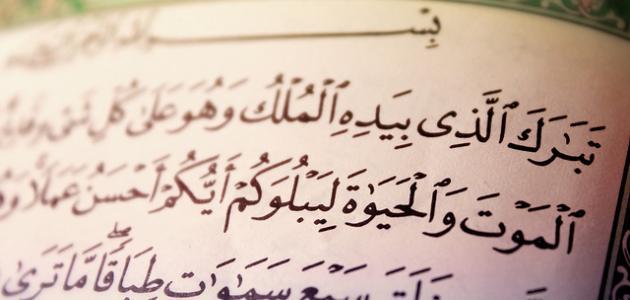 بِسْـــــــــــــــمِ
تَبَٰرَكَ ٱلَّذِى بِيَدِهِ ٱلْمُلْكُ وَهُوَ عَلَىٰ كُلِّ شَىْءٍ
ٱلْمَوْتَ وَٱلْحَيَوٰةَ لِيَبْلُوَكُمْ أَيُّكُمْ أَحْسَنُ عَمَلًا
سَبْعَ سَمَٰوَٰتٍ طِبَاقًا مَّا تَرَىٰ